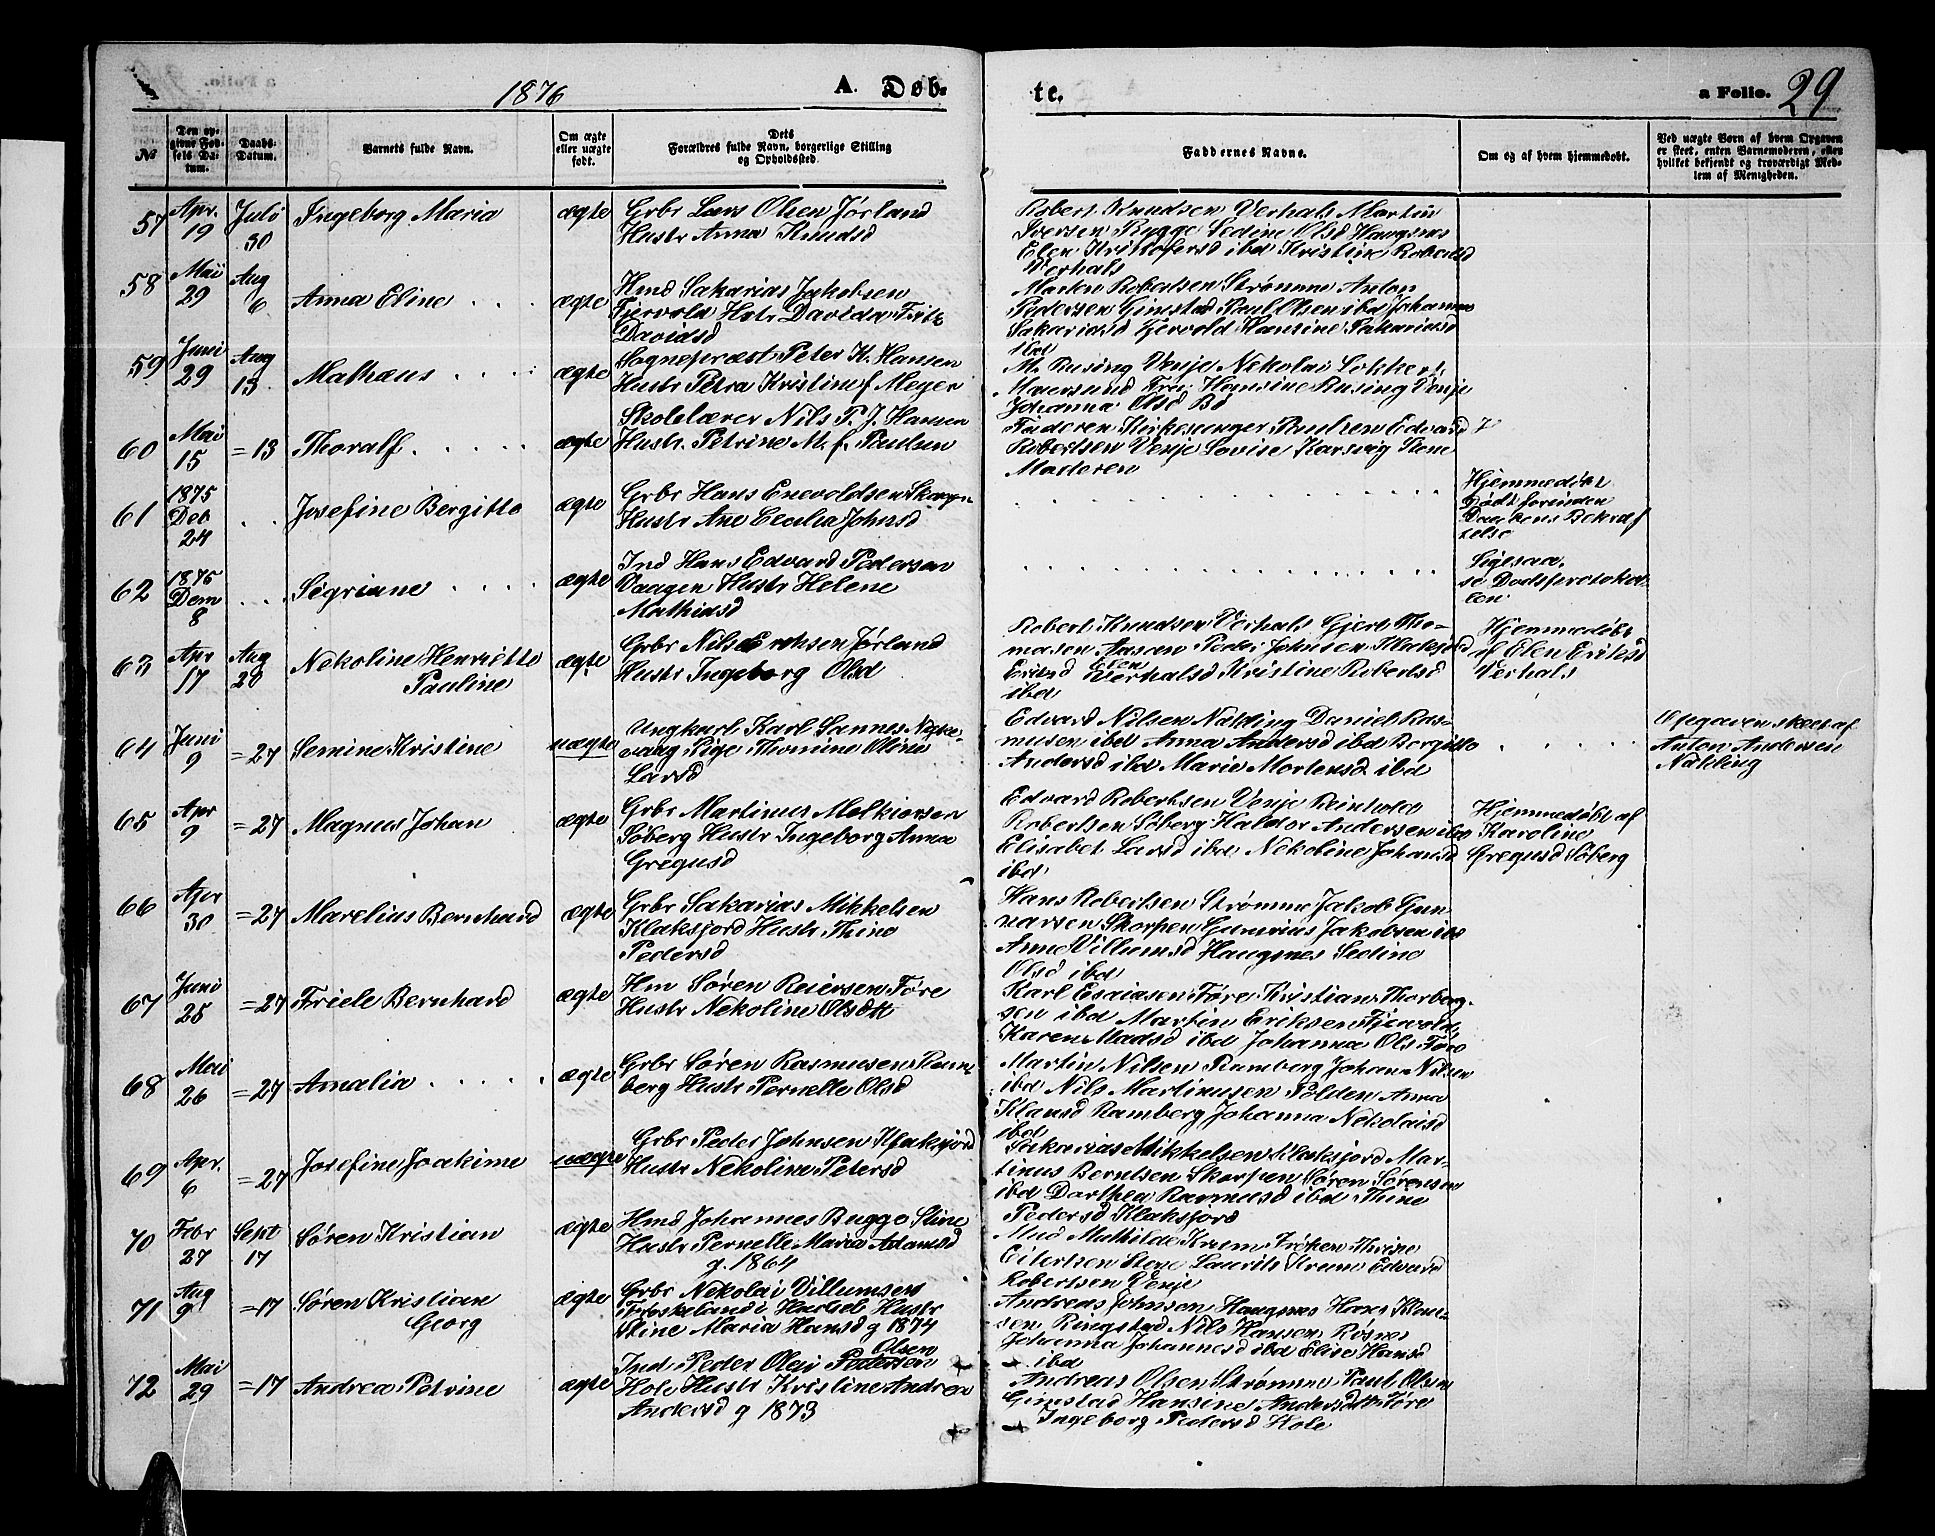 1876
A. Døb-
te.
a Folio. 29
№
Den op-
givne Fød-
sels Da-
tum.
Daabs-
Datum.
Barnets fulde Navn.
Om ægte
eller uægte
født.
Dets
Forældres fulde Navn, borgerlige Stilling
og Opholdssted.
Faddernes Navne.
Om og af hvem hjemmedøbt.
Ved uægte Børn af hvem Opgaven
er skeet, enten Barnemoderen, eller
hvilket bekjendt og troværdigt Med-
lem af Menigheden.
57 Apr. 19 Juli 30 Ingeborg Maria ægte
Grbr Lars Olsen Jørland
Hustr Anna Knudsd
Robert Knudsen Verhals Martin
Iversen Bygge Sedine Olsd Haugsnes
Elen Kristofersd ibd Kristine Robertsd
Verhals
58 Mai 29 Aug 6 Anna Eline ægte
Hmd Sakarias Jakobsen
Hstr Davida
Davidsd
Morten Robertsen Strømme Anton
Pedersen Gimstad Paul Olsen ibd Johanna
Sakariasd Hansine Sakariasd
ibd
59 Juni 29 Aug 13. Mathæus ægte
Sognepræst Peter K. Hansen
Hustr Petra Kristine f Meyer
M. Rusing Venje Nekolai Lokkert
Hansine Rusing Venje
Johanna Olsd Bø
60 Mai 15 = 13 Thoralf ægte
Skolelærer Nils P. J. Hansen
Hustr. Petrine M. f. Paulsen
Faderen Kirkesanger Edvard
Robertsen Venje Lovise
Moderen
61 1875 Deb 24 Josefine Bergitte ægte
Grbr Hans Enevoldsen
Hustr Ane Cecilia Johnsd
Hjemmedøbt
Død forinden
62 1875 Dem 8 Sigriane ægte
Ind Hans Edvard Pedersen
Vaagen Hustr Helene
Mathiasd
Ligesaa.
se Dødsprotokol-
len.
63 Apr 17 Aug 20 Nekoline Henriette
Pauline ægte
Grbr Nils Eriksen Jørland
Hustr Ingeborg Olsd
Robert Knudsen Verhals Gjert Tho-
masen Aasan Peder Johnsen Klaksjord
Elen
Eriksd Verhalsd Kristine Robertsd
ibd
Hjemmedøbt
af Elen Eriksd
Verhals
64 Juni 9 = 27 Semine Kristine uægte
Ungkarl Karl Sannes
Pige Thomine Oline
Larsd
Edvard Nilsen Nükling Daniel Ras-
musen ibd Anna Andersd ibd Bergitte
Andersd ibd Marie Mortensd ibd
Opgaven skeet af
Anton Andersen
Nükling
65 Apr 9 = 27 Magnus Johan ægte
Grbr Martinus Melkiorsen
Søberg Hustr Ingeborg Anna
Gregusd
Edvard Robertsen Venje Reinholt
Robertsen Søberg Haldor Andersen ibd
Elisabet Larsd ibd Nekoline Johansd
ibd.
Hjemmedøbt af
Karoline
Gregusd Søberg
66 Apr 30 = 27 Marelius Bernhard ægte
Grbr Sakarias Mikkelsen
Klaksjord Hustr Thine
Pedersd
Hans Robertsen Strømme Jakob Gun-
narsen Skorpen Gunerius Jakobsen ibd
Anne Villumsd Haugsnes Sedine
Olsd ibd
67 Juni 25 = 27 Friele Bernhard ægte
Hm Søren Reiersen Føre
Hustr Nekoline Olsdtt
Karl Esaiasen Føre Kristian Thorberg-
sen ibd Martin Eriksen
Karen Madsd ibd Johanna Ols Føre
68 Mai 26 = 27 Amalia ægte
Grbr Søren Rasmusen Ram-
berg Hustr Pernelle Olsd
Martin Nilsen Ramberg Johan Nilsen
ibd Nils Martinusen Polden Anna
Klausd Ramberg Johanna Nekolaisd
ibd
69 Apr. 6 = 27 Josefine Joakime uægte
Grbr Peder Johnsen Klaksjord
Hustr Nekoline Petersd
Sakarias Mikkelsen Klaksjord Mar-
tinus Berntsen Skorpen Søren Sørensen
ibd Dorthea Rasmusd ibd Thine
Pedersd Klaksjord
70 Febr 27 Sept 17 Søren Kristian ægte
Hmd Johannes Bugge Stene
Hustr Pernelle Maria Adamsd
g. 1864
Mathilde Krum Frøken Thrine
Eilertsen Stene Laurits Krum Edvard
Robertsen Venje
71 Aug 9 = 17 Søren Kristian
Georg ægte
Grbr Nekolai Villumsen
Friskeland i Hadsel Hustr
Stine Maria Hansd g 1874
Andreas Johnsen Haugsnes Hans
sen Ringstad Nils Hansen Røsnes
Johanna Johannesd ibd Elise Hansd
ibd
72 Mai 29 = 17 Andrea Petrine ægte
Olsen
Ind Peder Olai Pedersen
Hole Hustr Kristine Andrea
Andersd g 1873
Andreas Olsen Strømme Paul Olsen
Gimstad Hansine Andersdtt Føre
Ingeborg Pedersd Hole